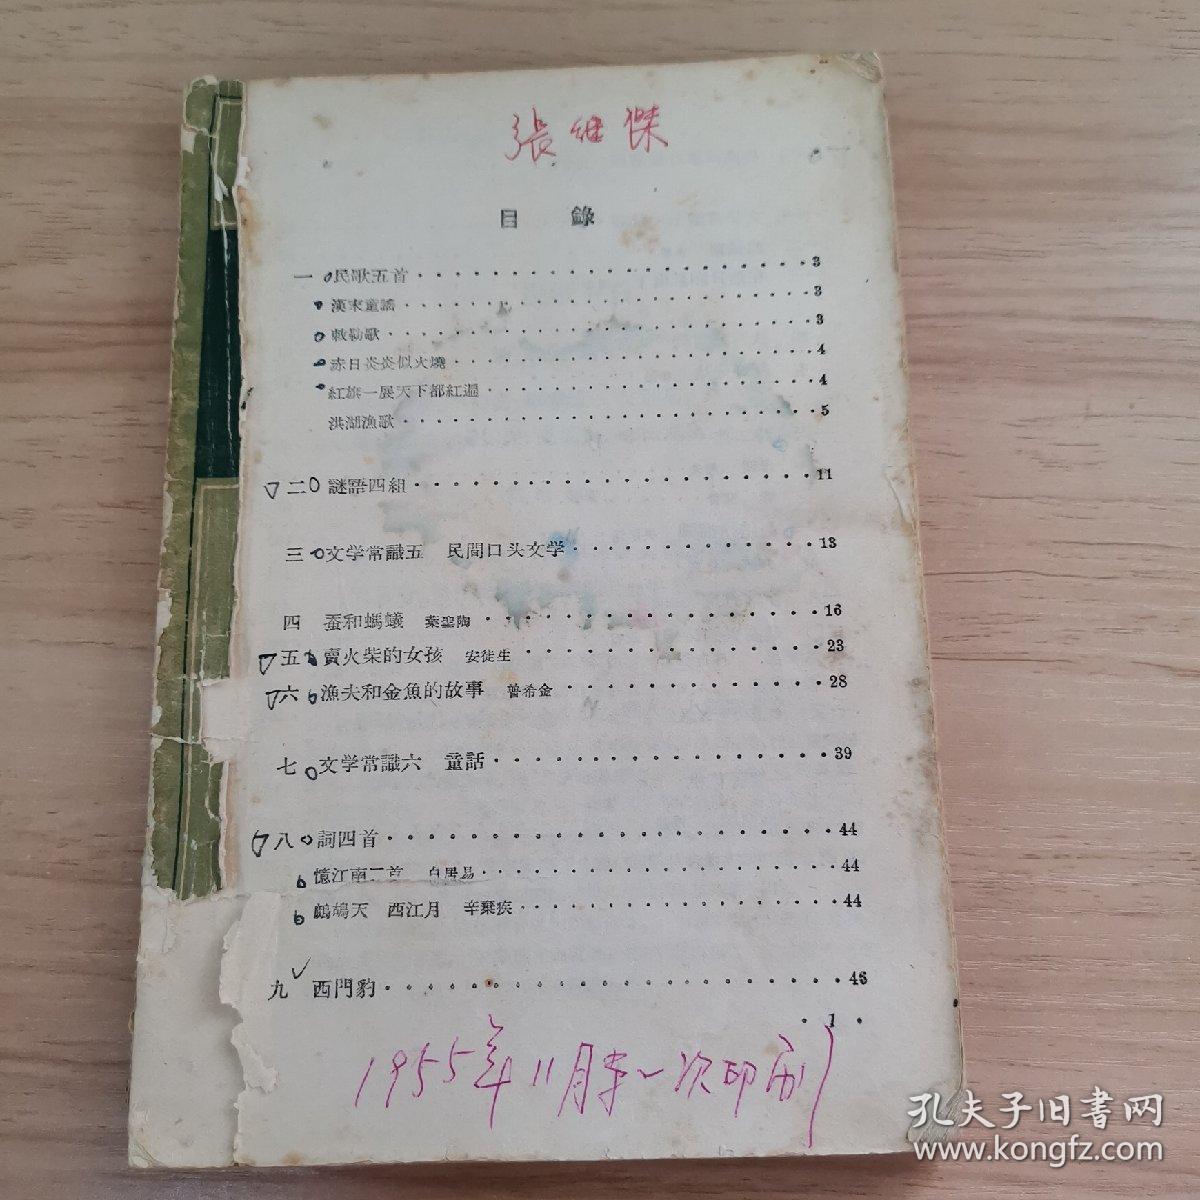 張継傑
目 錄
一 民歌五首 3
漢末童謠 3
敕勒歌 3
赤日炎炎似火燒 4
紅旗一展天下都紅遍 4
洪湖漁歌 5
二 謎語四組 11
三 文学常識五 民間口头文学 13
四 蚕和螞蟻 葉聖陶 16
五 賣火柴的女孩 安徒生 23
六 漁夫和金魚的故事 普希金 28
七 文学常識六 童話 39
八 詞四首 44
憶江南二首 白居易 44
鷓鴣天 西江月 辛棄疾 44
九 西門豹 46
· 1 ·
1955年11月第一次印刷
孔夫子旧书网
www.kongfz.com